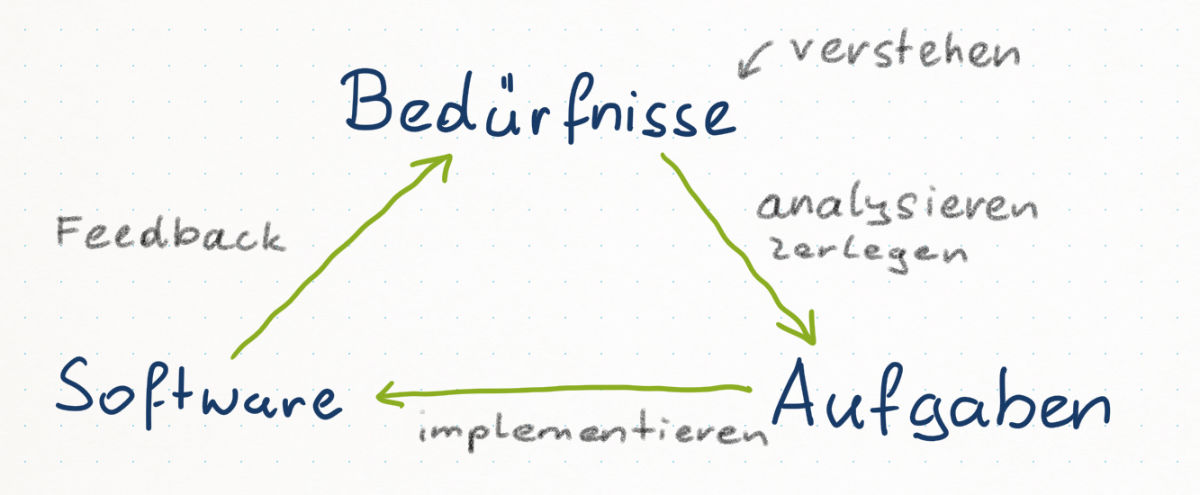 verstehen
Bedürfnisse
analysieren
zerlegen
Feedback
Software
Aufgaben
implementieren